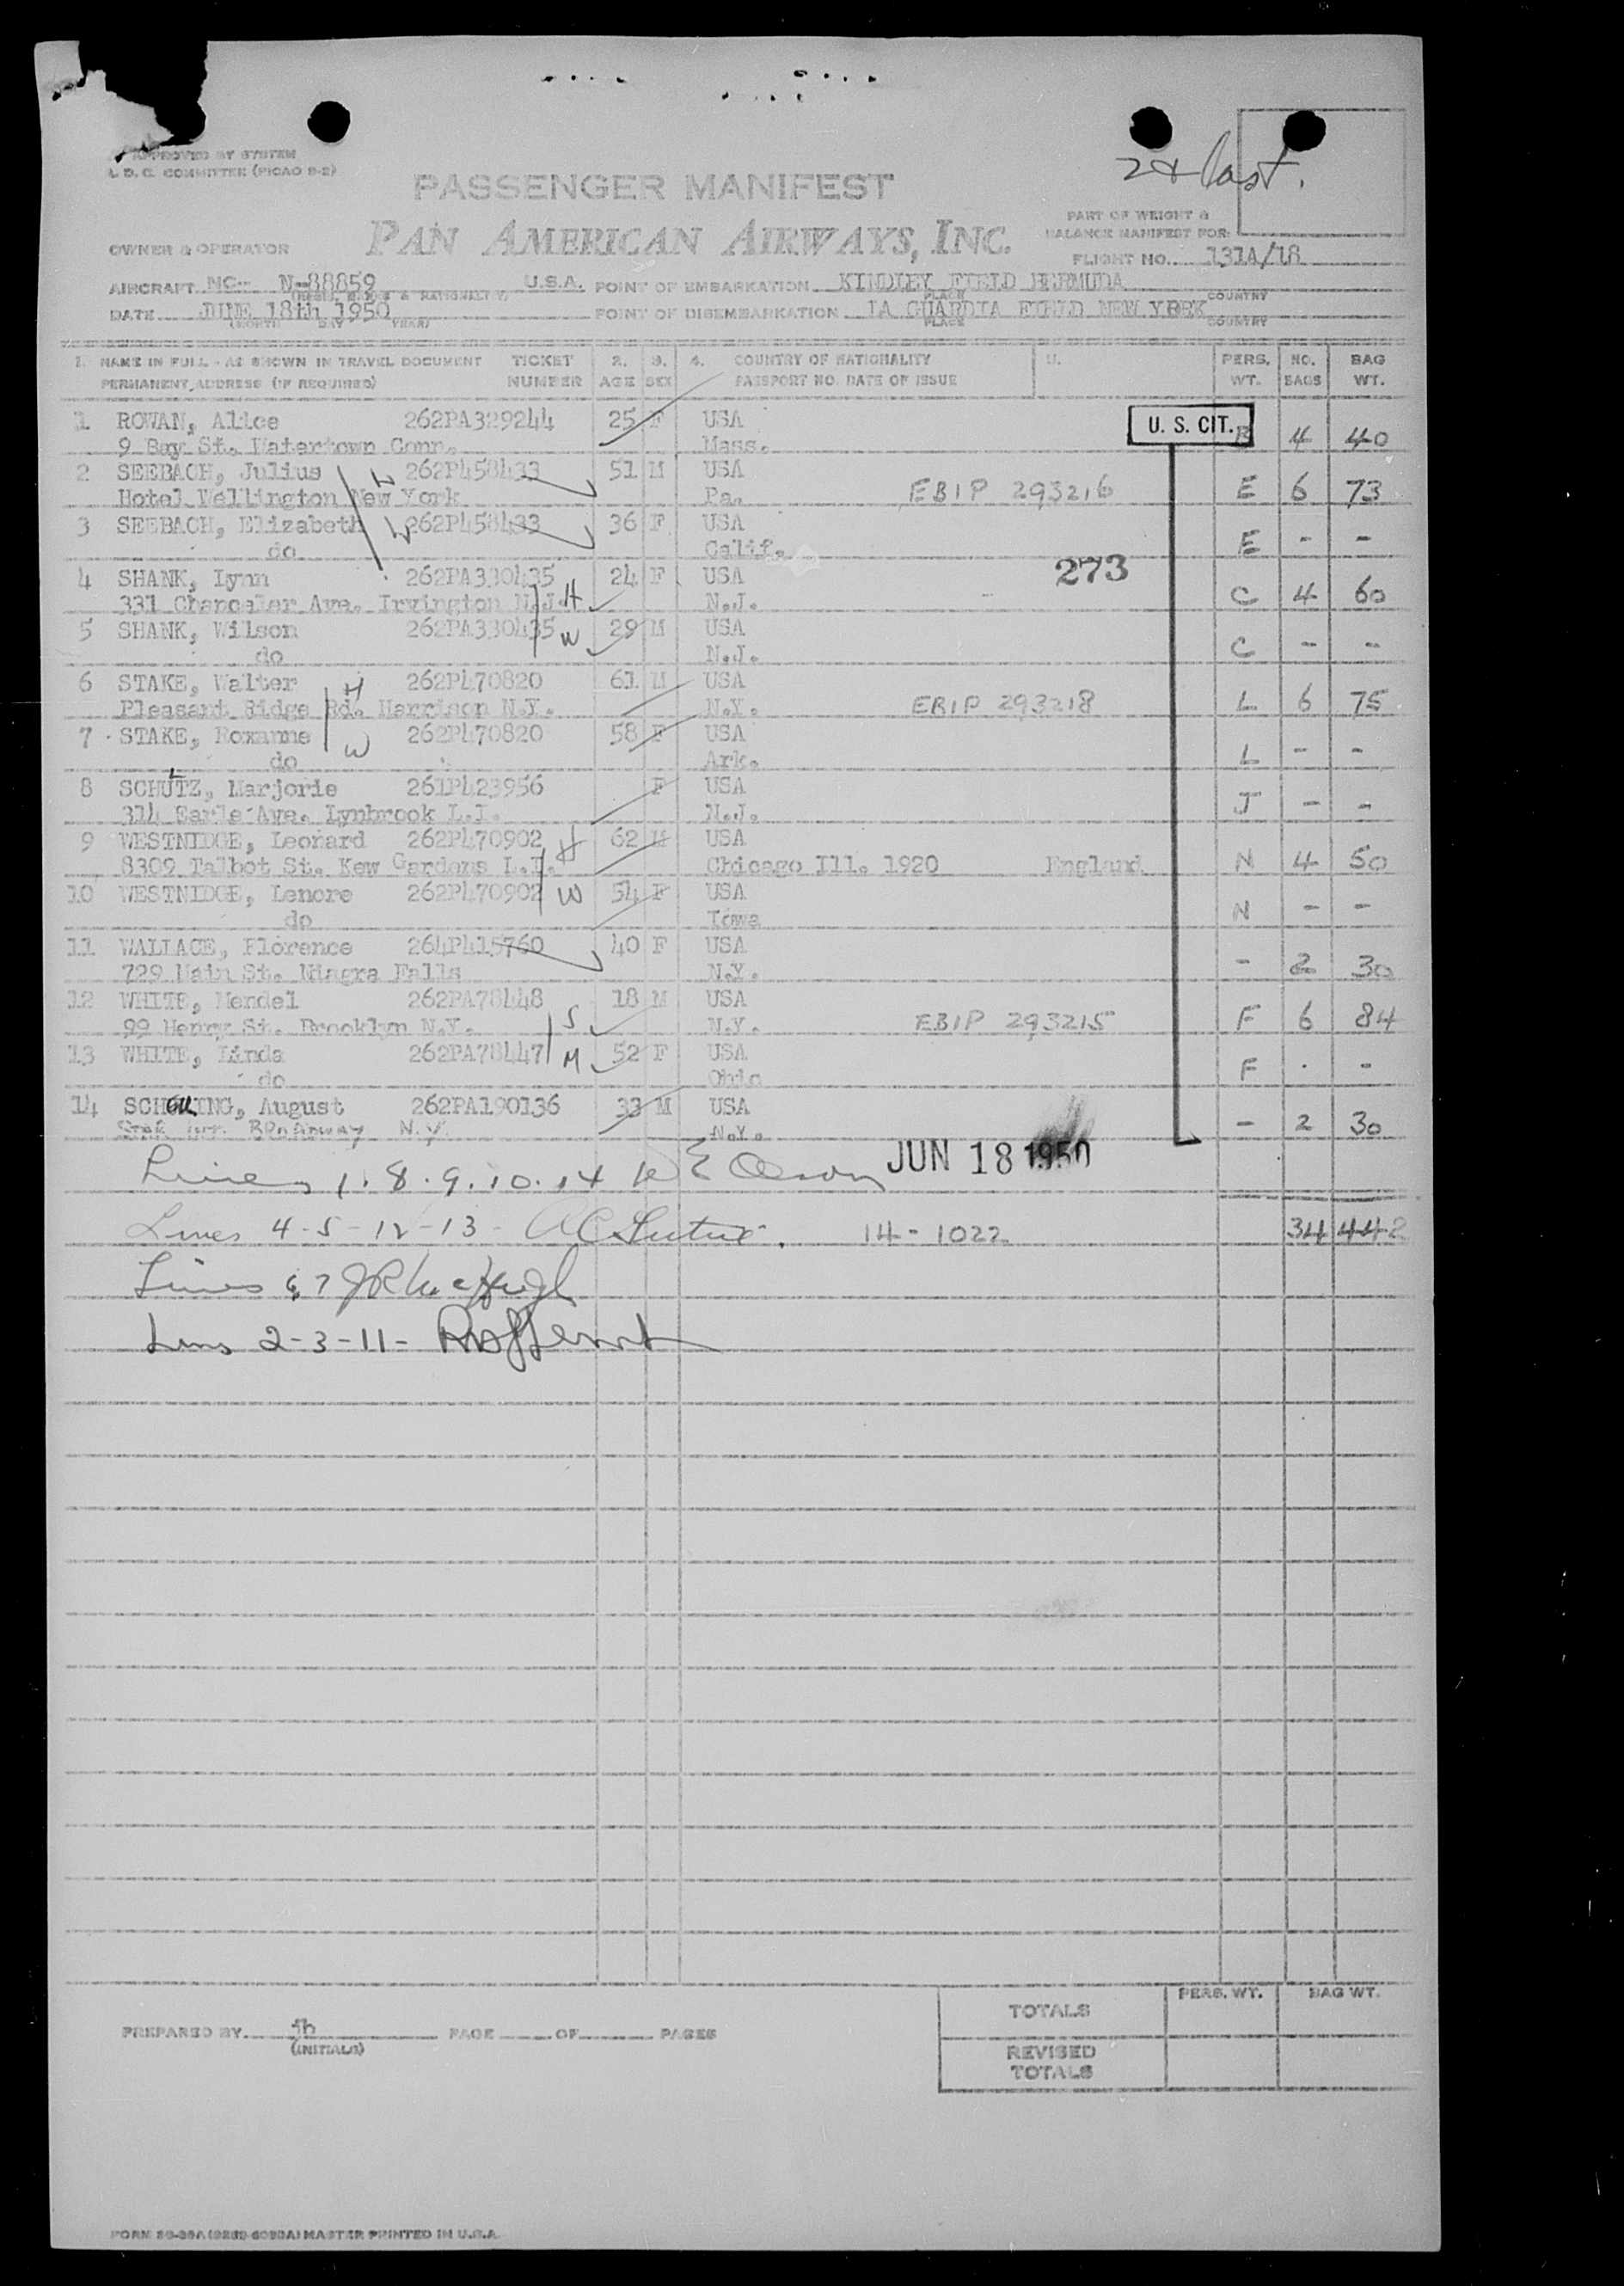 APPROVED BY SYSTEM
I. D. C. COMMITTEE (PICAO B-2)
2d last.
PASSENGER MANIFEST
PAN AMERICAN AIRWAYS, INC.
PART OF WEIGHT &
BALANCE MANIFEST FOR:
OWNER & OPERATOR
FLIGHT NO. 131A/18
AIRCRAFT NC- N-88859 U.S.A. POINT OF EMBARKATION KINDLEY FIELD BERMUDA
PLACE COUNTRY
DATE JUNE 18th 1950 POINT OF DISEMBARKATION LA GUARDIA FIELD NEW YORK
(MONTH DAY YEAR) PLACE COUNTRY
1. NAME IN FULL - AS SHOWN IN TRAVEL DOCUMENT TICKET 2. 3. 4. COUNTRY OF NATIONALITY U. PERS. NO. BAG
PERMANENT ADDRESS (IF REQUIRED) NUMBER AGE SEX PASSPORT NO. DATE OF ISSUE WT. BAGS WT.
1 ROWAN, Alice 262PA329244 25 F USA U. S. CIT.
9 Bay St. Watertown Conn. Mass. B 4 40
2 SEEBACH, Julius 262P458433 51 M USA
Hotel Wellington New York Pa. EBIP 293216 E 6 73
3 SEEBACH, Elizabeth 262P458433 36 F USA
do Calif. E - -
273
4 SHANK, Lynn 262PA330435 24 F USA
331 Chanceler Ave. Irvington N.J. H N.J. C 4 60
5 SHANK, Wilson 262PA330435 W 29 M USA
do N.J. C - -
6 STAKE, Walter H 262P470820 61 M USA
Pleasant Ridge Rd. Harrison N.Y. N.Y. EBIP 293218 L 6 75
7 STAKE, Roxanne W 262P470820 58 F USA
do Ark. L - -
8 SCHUTZ, Marjorie 261P423956 F USA
314 Earle Ave. Lynbrook L.I. N.J. J - -
9 WESTNIDGE, Leonard 262P470902 H 62 M USA
8309 Talbot St. Kew Gardens L.I. Chicago Ill. 1920 England N 4 50
10 WESTNIDGE, Lenore 262P470902 W 54 F USA
do Iowa N - -
11 WALLACE, Florence 264P415760 40 F USA
729 Main St. Niagra Falls N.Y. - 2 30
12 WHITE, Mendel 262PA78448 18 M USA
99 Henry St. Brooklyn N.Y. S N.Y. EBIP 293215 F 6 84
13 WHITE, Linda 262PA78447 M 52 F USA
do Ohio F - -
14 ING, August 262PA190136 33 M USA
Broadway N.Y. N.Y. - 2 30
Lines 1. 8. 9. 10. 14 JUN 18 1950
Lines 4-5-12-13- 14-1022 34 442
Lines 6, 7
Lines 2-3-11-
TOTALS PERS. WT. BAG WT.
PREPARED BY PAGE OF PAGES
(INITIALS)
REVISED
TOTALS
MASTER PRINTED IN U.S.A.